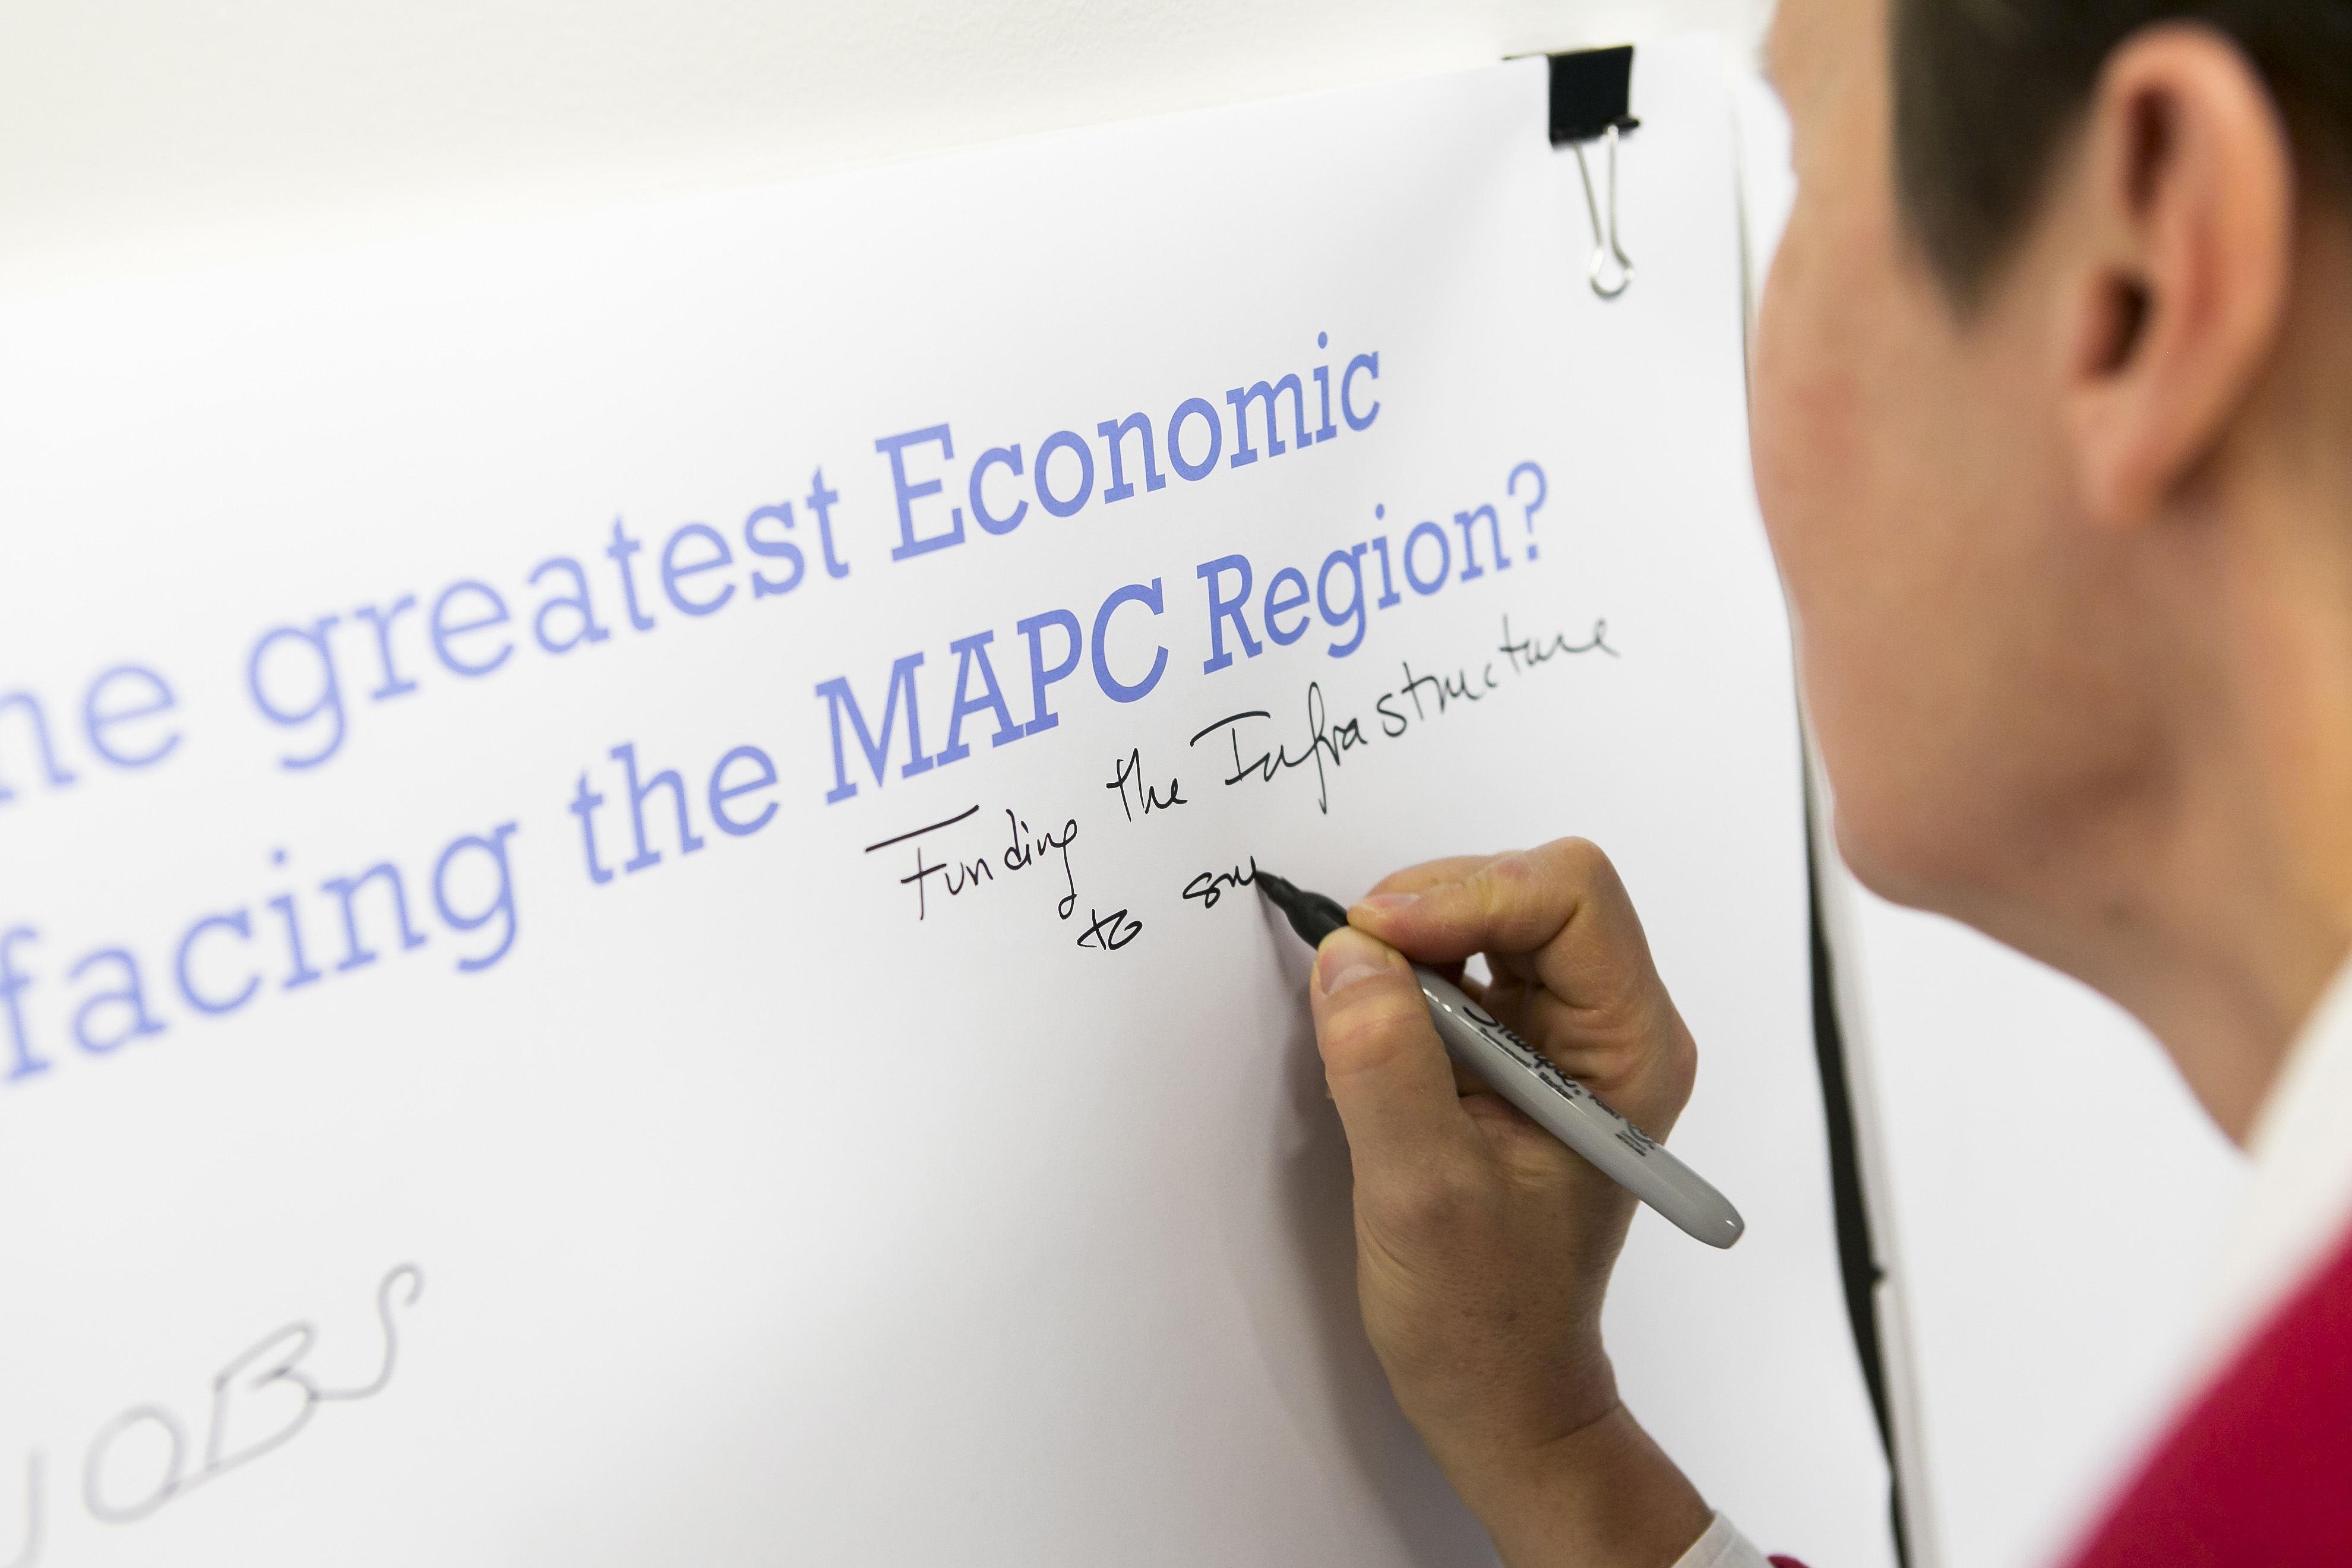 he greatest Economic
facing the MAPC Region?
Funding the Infrastructure
to su
JOBS
Sharpie